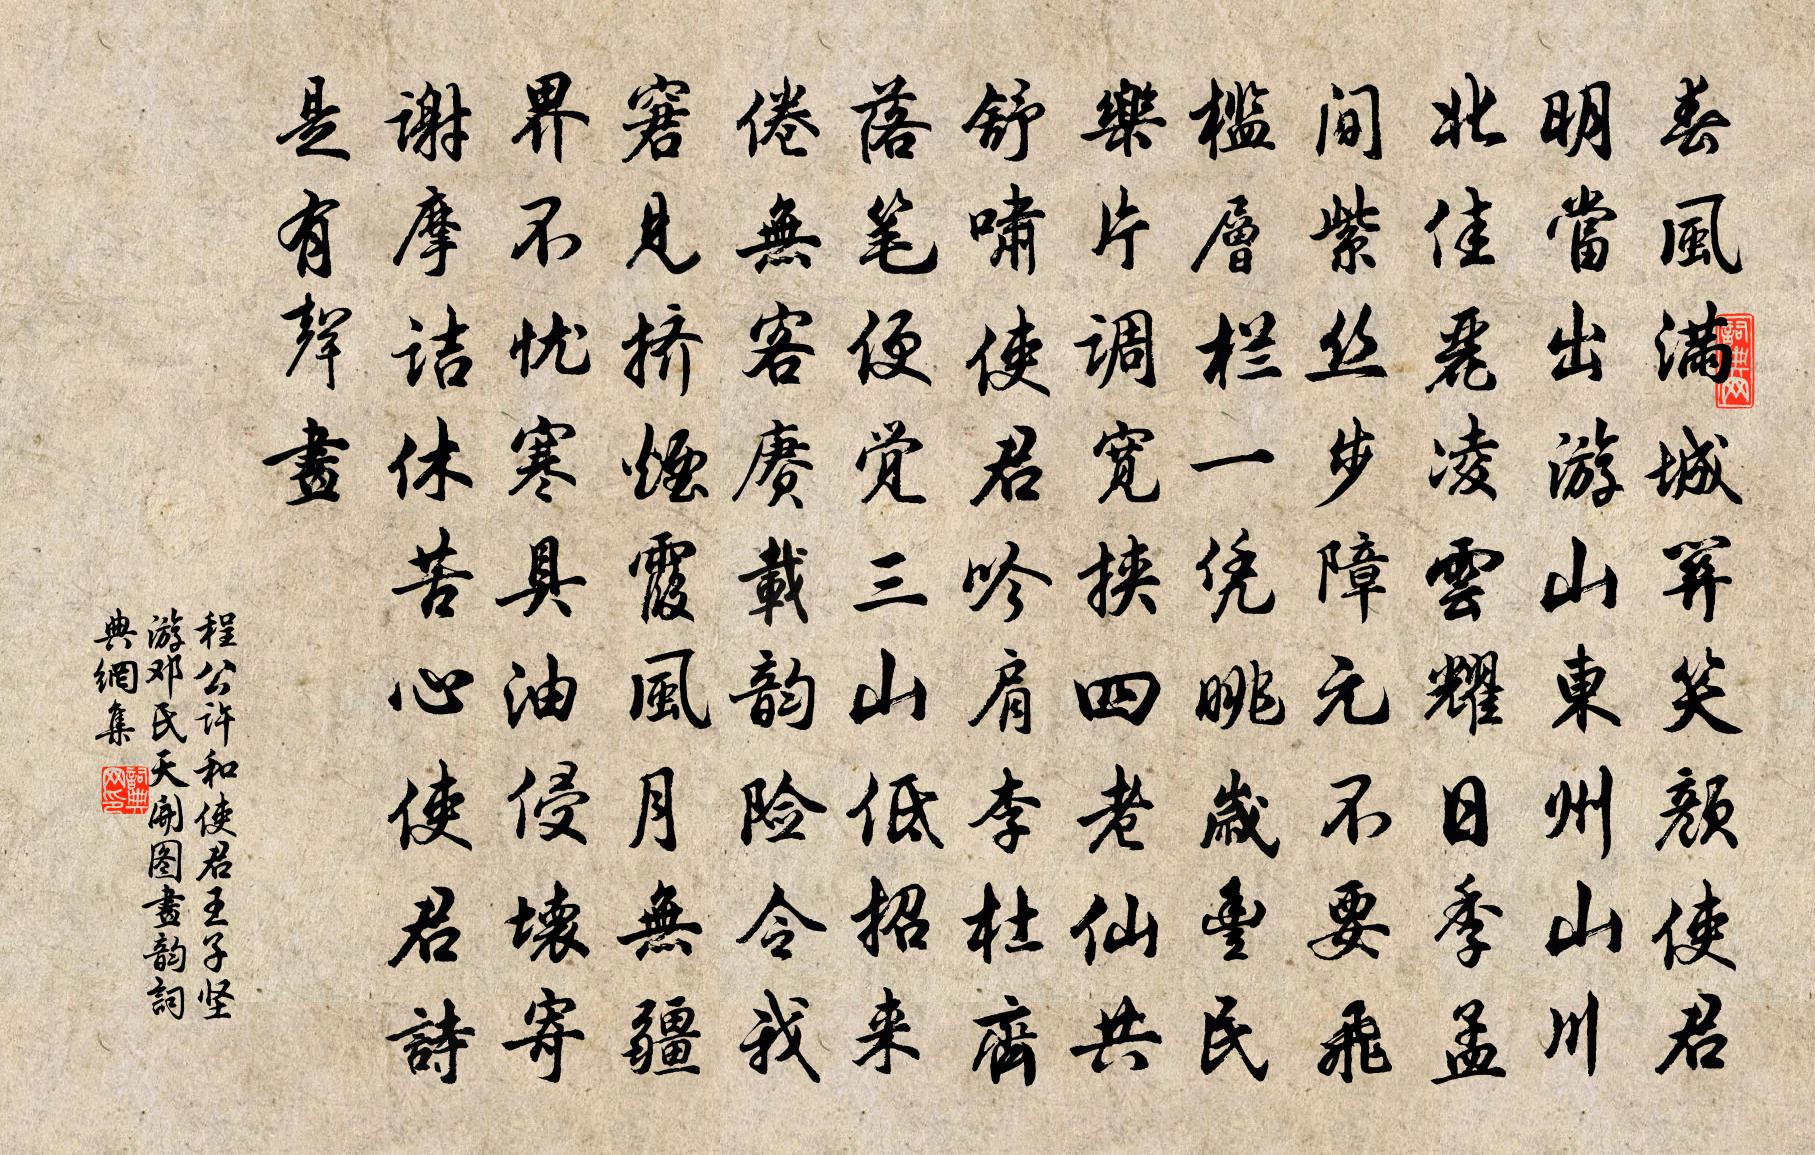 春風滿城開笑顏使君
明當出游山東州山川
北佳麗凌雲耀日季孟
间紫丝步障元不要飛
槛層栏一凭眺歲豊民
樂片調宽挟四老仙共
舒嘯使君吟肩李杜齊
落笔便觉三山低招来
倦無客赓載韵险令我
窘見挤煙霞風月無疆
界不忧寒具油侵壊寄
谢摩詰休苦心使君詩
是有聲畫
程公许和使君王子坚
游邓氏天開图畫韵詞
典網集
詞典网
詞典网印